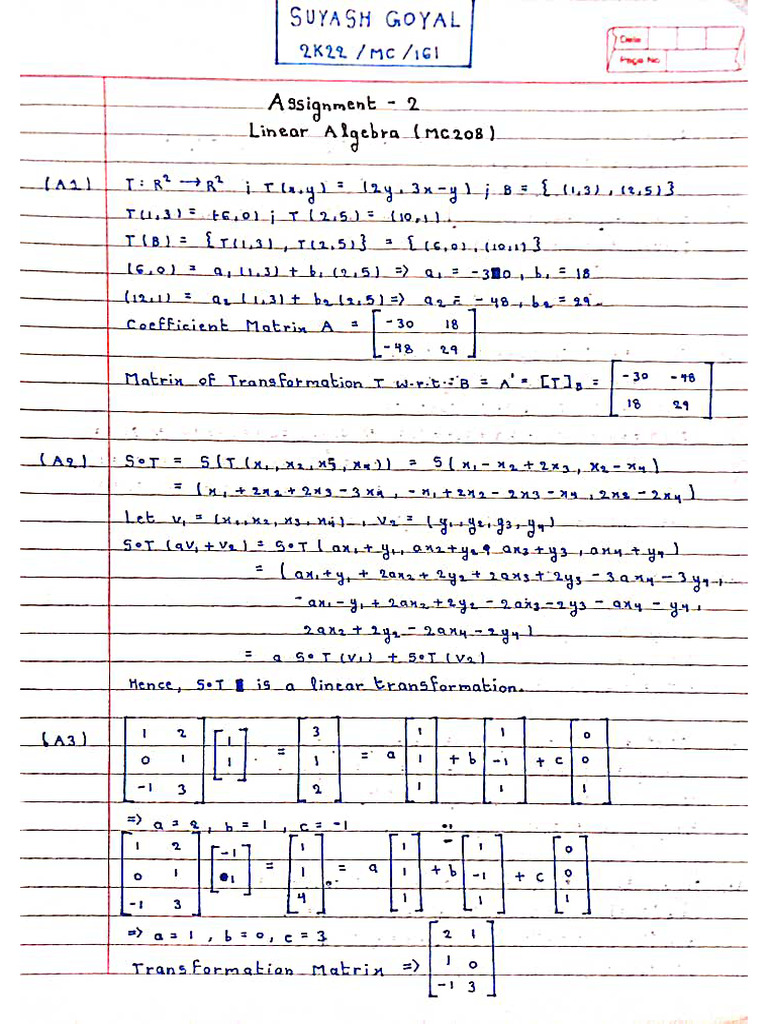 SUYASH GOYAL
2K22 / MC / 161
Date
Page No
Assignment - 2
Linear Algebra (MC208)
(A1) T: R² → R² ; T(x,y) = (2y, 3x-y) ; B = { (1,3) , (2,5)}
T(1,3) = (6,0) ; T(2,5) = (10,1).
T(B) = {T(1,3) , T(2,5)} = {(6,0) , (10,1)}
(6,0) = a₁ (1,3) + b₁ (2,5) => a₁ = -30 , b₁ = 18
(12,1) = a₂ (1,3) + b₂ (2,5) => a₂ = -48 , b₂ = 29.
Coefficient Matrix A = [ -30 18
-48 29 ]
Matrix of Transformation T w.r.t. B = A' = [T]B = [ -30 -48
18 29 ]
(A2) S∘T = S(T(x₁, x₂, x3, x₄)) = S(x₁ - x₂ + 2x₃ , x₂ - x₄)
= (x₁ + 2x₂ + 2x₃ - 3x₄ , -x₁ + 2x₂ - 2x₃ - x₄ , 2x₂ - 2x₄)
Let v₁ = (x₁, x₂, x₃, x₄) , v₂ = (y₁, y₂, y₃, y₄)
S∘T (av₁ + v₂) = S∘T ( ax₁ + y₁, ax₂ + y₂, ax₃ + y₃, ax₄ + y₄)
= (ax₁ + y₁ + 2ax₂ + 2y₂ + 2ax₃ + 2y₃ - 3ax₄ - 3y₄,
-ax₁ - y₁ + 2ax₂ + 2y₂ - 2ax₃ - 2y₃ - ax₄ - y₄,
2ax₂ + 2y₂ - 2ax₄ - 2y₄)
= a S∘T (v₁) + S∘T (v₂)
Hence, S∘T is a linear transformation.
(A3) [ 1 2
0 1
-1 3 ] [ 1
1 ] = [ 3
1
2 ] = a [ 1
1
1 ] + b [ 1
-1
1 ] + c [ 0
0
1 ]
=> a = 2 , b = 1 , c = -1
[ 1 2
0 1
-1 3 ] [ -1
1 ] = [ 1
1
4 ] = a [ 1
1
1 ] + b [ 1
-1
1 ] + c [ 0
0
1 ]
=> a = 1 , b = 0 , c = 3
Transformation Matrix => [ 2 1
1 0
-1 3 ]